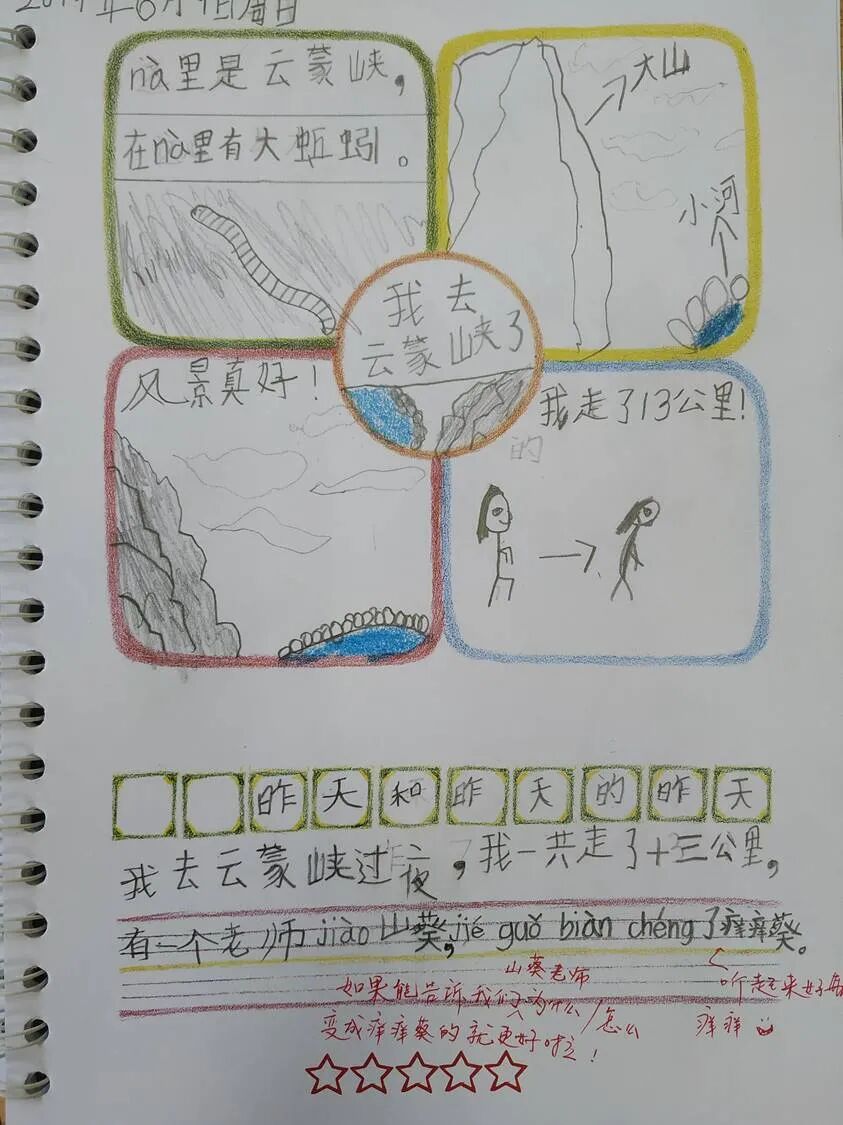 nà里是云蒙峡，
在nà里有大蚯蚓。
大山
小河
我去
云蒙峡了
风景真好！
我走了13公里！
的
昨天和昨天的昨天
我去云蒙峡过夜，我一共走了十三公里，
有一个老师jiào山葵，jié guǒ biàn chéng了痒痒葵。
山葵老师
如果能告诉我们为什么/怎么
变成痒痒葵的就更好啦！
听起来好像
痒痒